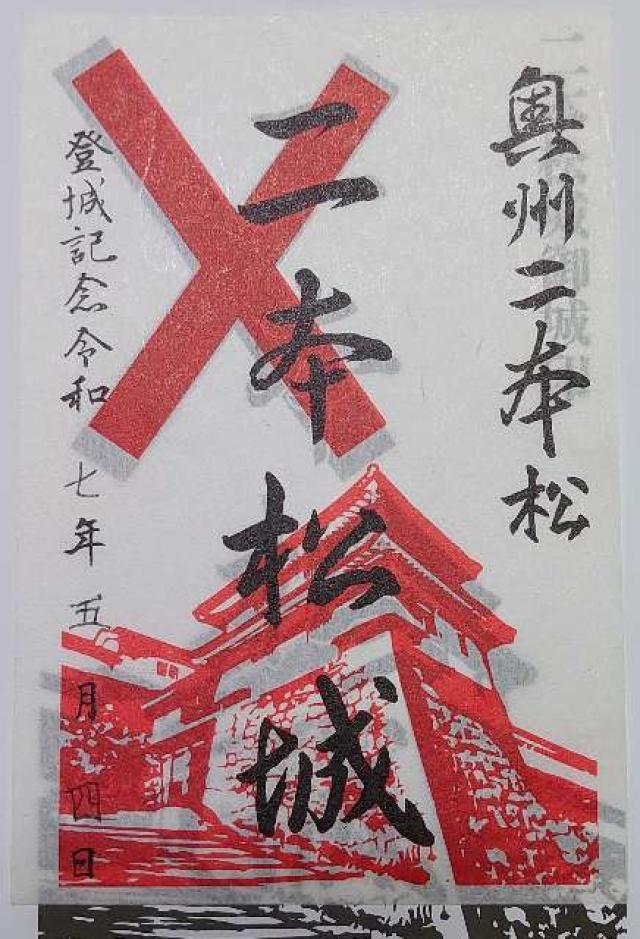 奥州二本松
二本松城
登城記念令和七年五月四日